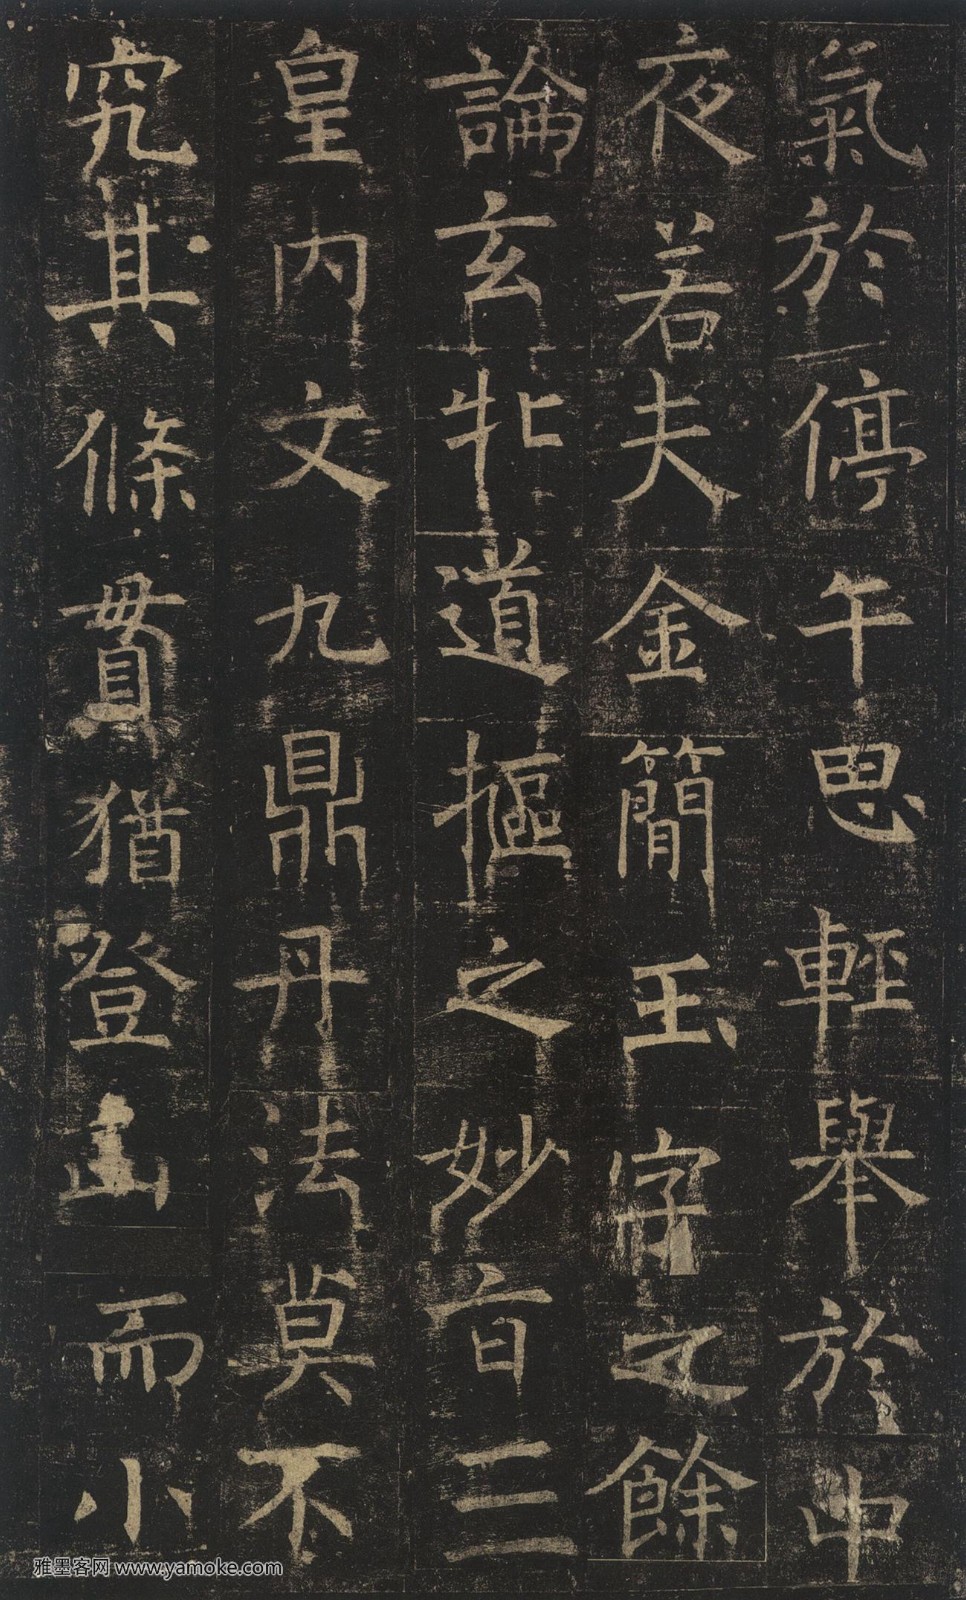 氣於停午思輕舉於中
夜若夫金簡玉字之餘
論玄牝道摳之妙旨三
皇內文九鼎丹法莫不
究其條貫猶登山而小
雅墨客网 www.yamoke.com